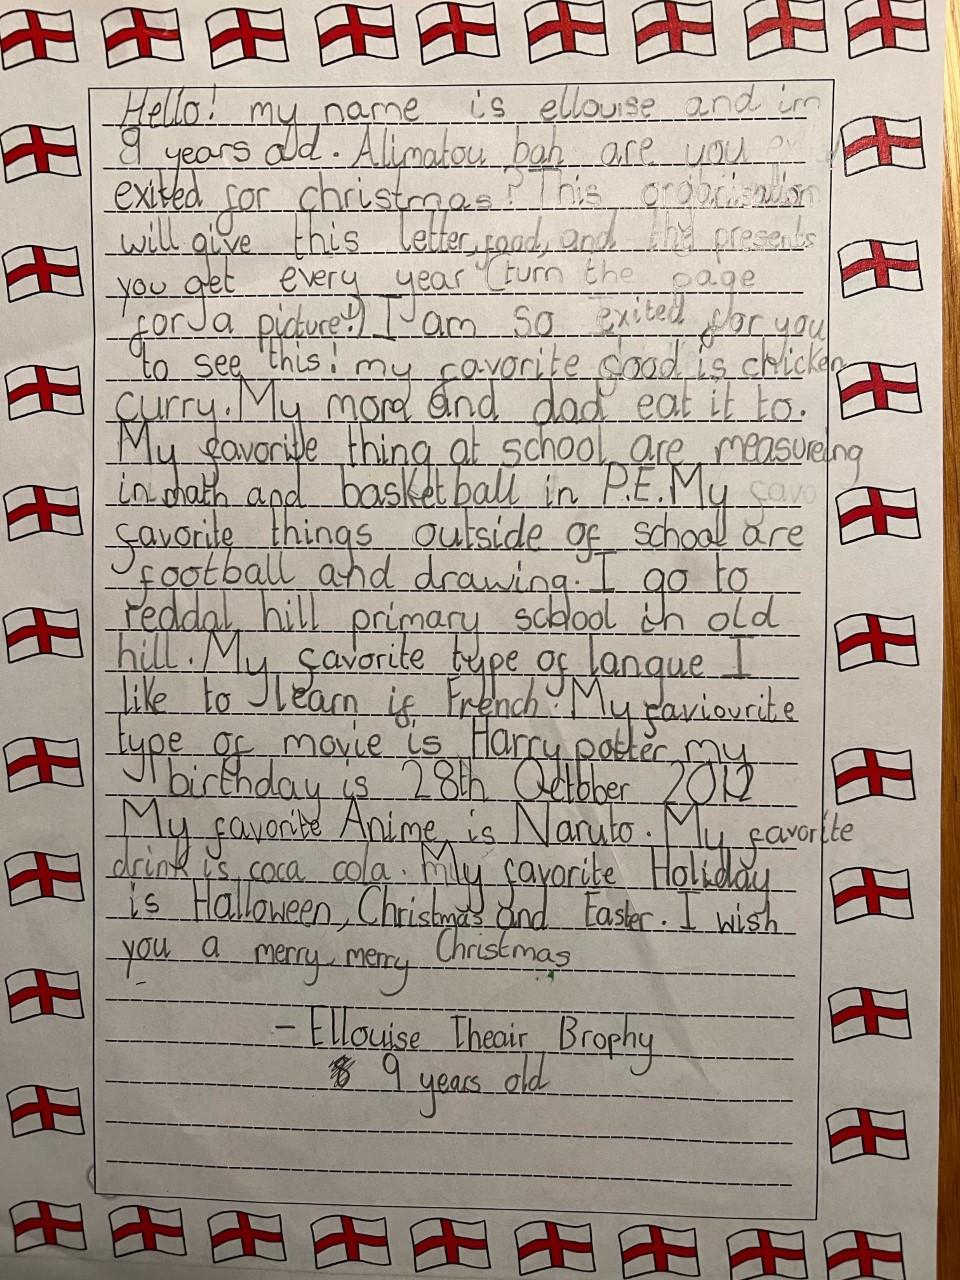 Hello! my name is ellouise and im
9 years old. Alimatou bah are you
exited for christmas? This organisation
will give this letter, food, and the presents
you get every year (turn the page
for a picture!) I am so exited for you
to see this! my favorite food is chicken
curry. My mom and dad eat it to.
My favorite thing at school are measureing
in math and basketball in P.E. My favo
favorite things outside of school are
football and drawing. I go to
reddal hill primary school in old
hill. My favorite type of langue I
like to learn is French. My faviourite
type of movie is Harry potter my
birthday is 28th October 2012
My favorite Anime is Naruto. My favorite
drink is coca cola. My favorite Holiday
is Halloween, Christmas and Easter. I wish
you a merry merry Christmas
- Ellouise Iheair Brophy
9 years old